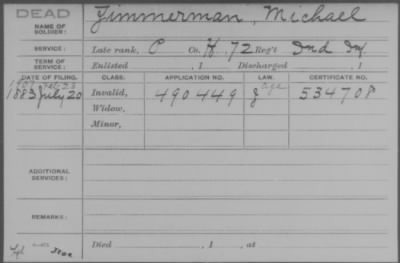 DEAD
NAME OF SOLDIER: Zimmerman, Michael
SERVICE: Late rank, P Co. H 72 Reg't Ind Inf
TERM OF SERVICE: Enlisted , 1 Discharged , 1
DATE OF FILING. CLASS. APPLICATION NO. LAW. CERTIFICATE NO.
1883 July 20 Invalid, 490449 J 534708
Widow,
Minor,
ADDITIONAL SERVICES:
REMARKS:
Died , 1 , at